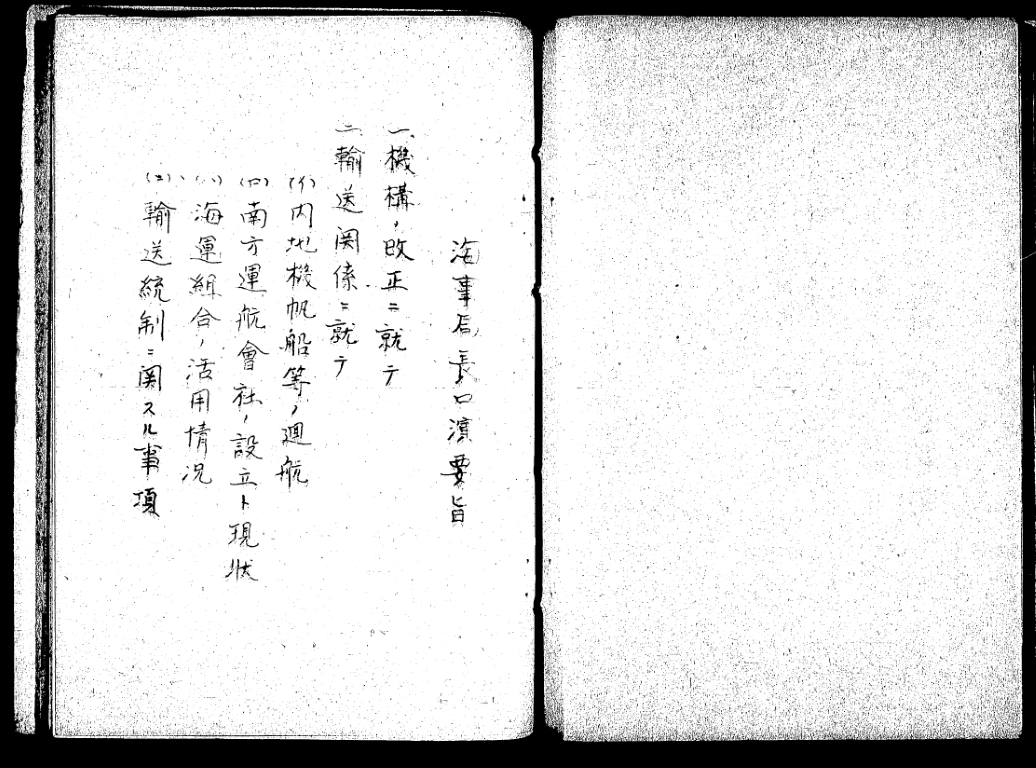 海事局長口演要旨
一、機構ノ改正ニ就テ
二、輸送関係ニ就テ
(イ)内地機帆船等ノ廻航
(ロ)南方運航會社ノ設立ト現状
(ハ)海運組合ノ活用情況
(ニ)輸送統制ニ関スル事項